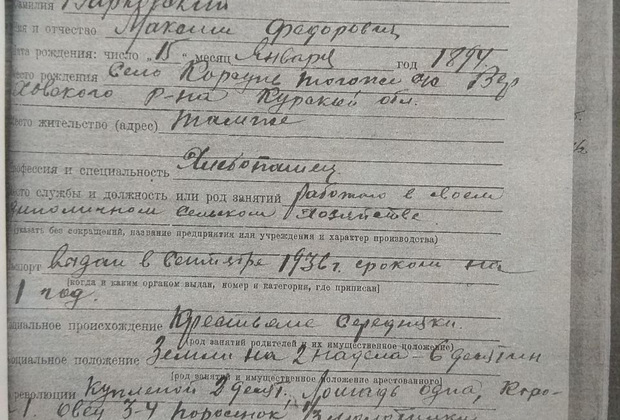 Фамилия
имя и отчество Максим Федорович
Дата рождения: число „15" месяц Января год 1894.
место рождения Село
ховского р-на Курской обл.
место жительство (адрес) Тамже
профессия и специальность Хлебопашец
место службы и должность или род занятий работаю в своем
единоличном сельском хозяйстве
(указать без сокращений, название предприятия или учреждения и характер производства)
Паспорт выдан в сентябре 1936 г. сроком на
1 год.
(когда и каким органом выдан, номер и категория, где приписан)
социальное происхождение Крестьяне Середняки.
(род занятий родителей и их имущественное положение)
социальное положение Земли на 2 надела - 6 десятин
(род занятий и имущественное положение арестованного)
революции купленой 2 десят. Лошадь одна, Коро-
1. Овец 3-4 поросенок